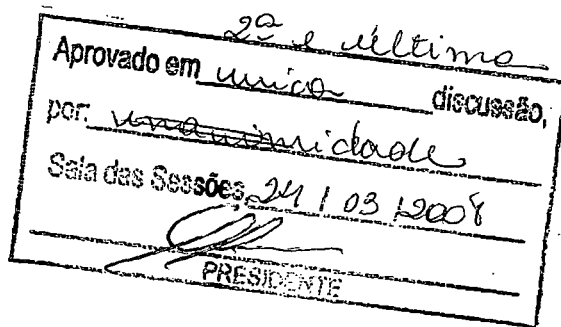 2ª e última
Aprovado em única discussão,
por: unanimidade
Sala das Sessões, 24 / 03 /2008
PRESIDENTE